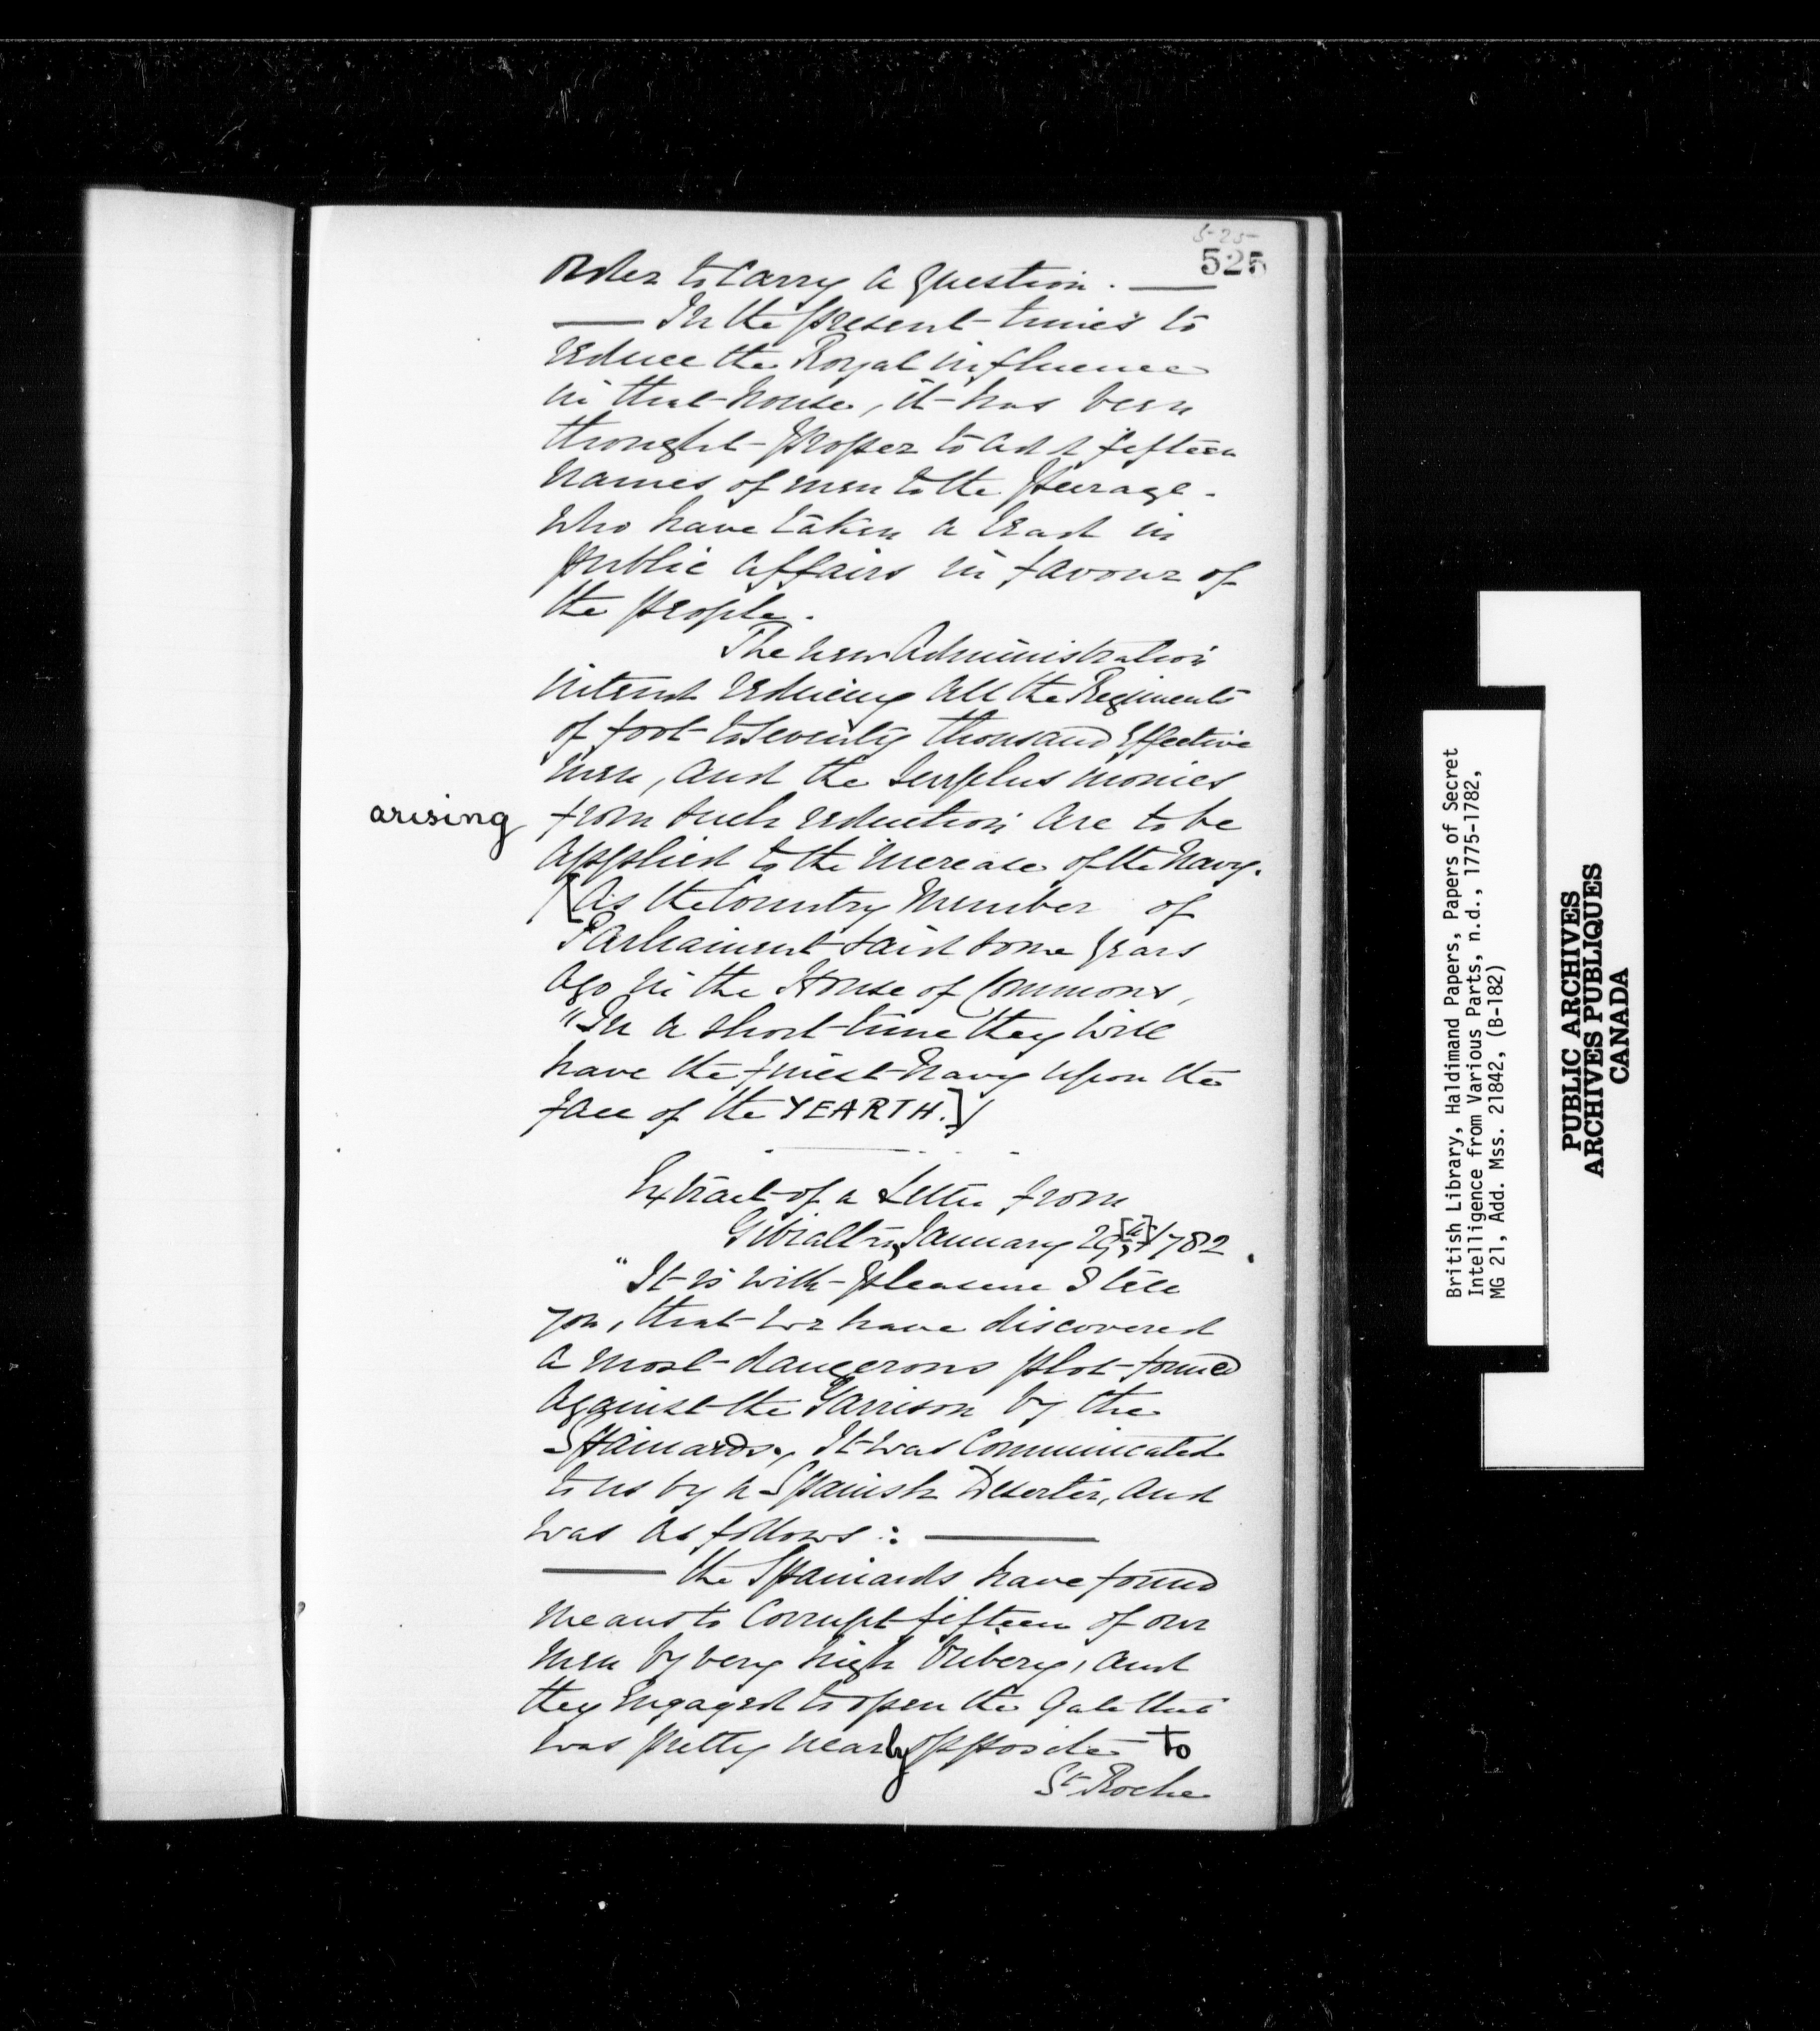 5-25-
525
order to carry a question. —
— In the present times to
reduce the Royal influence
in that house, it has been
thought proper to add fifteen
names of men to the Peerage.
who have taken a lead in
public affairs in favour of
the people.
The new Administration
intend reducing all the Regiments
of foot to seventy thousand effective
men, and the surplus monies
arising from such reduction are to be
applied to the increase of the Navy.
[As the Country Member of
Parliament said some years
ago in the House of Commons,
"In a short time they will
have the finest Navy upon the
face of the YEARTH.]
Extract of a Letter from
Gibraltar, January 29, 1782.
"It is with pleasure I tell
you, that we have discovered
a most dangerous plot formed
against the Garrison by the
Spaniards, It was Communicated
to us by a Spanish Deserter, and
was as follows: —
— the Spaniards have found
means to Corrupt fifteen of our
men by very high bribery, and
they engaged to open the Gate that
was pretty nearly opposite to
St Roche
British Library, Haldimand Papers, Papers of Secret
Intelligence from Various Parts, n.d., 1775-1782,
MG 21, Add. Mss. 21842, (B-182)
PUBLIC ARCHIVES
ARCHIVES PUBLIQUES
CANADA